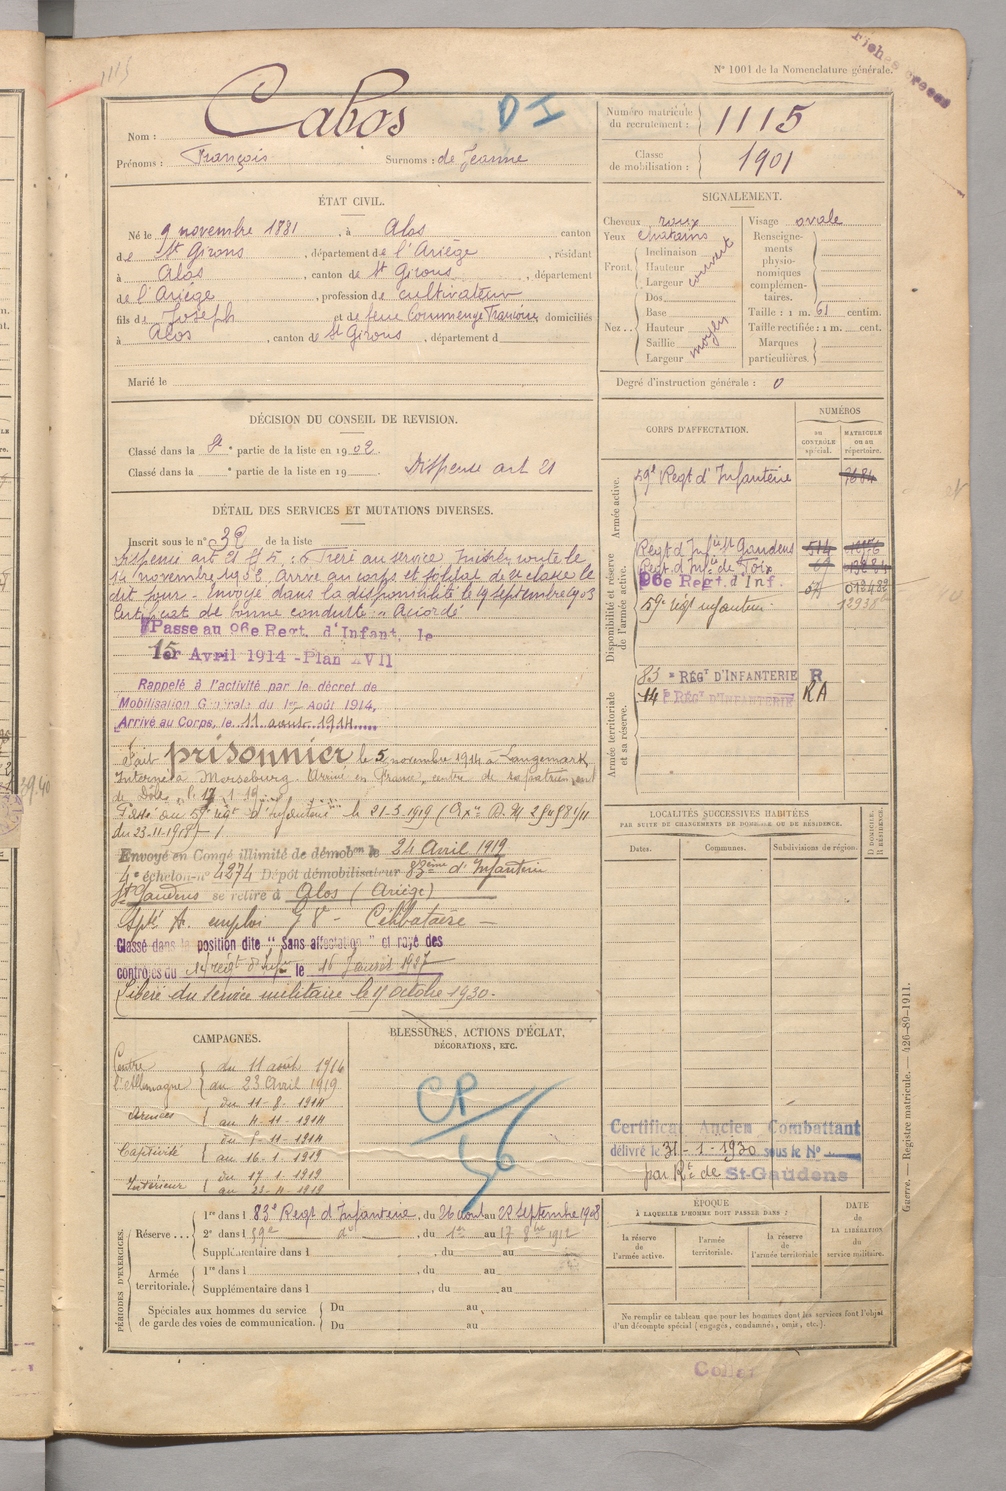 Fiches
N° 1001 de la Nomenclature générale.
1115
Nom : Cabos
D I
Prénoms : François Surnoms : de Jeanne
Numéro matricule du recrutement : 1115
Classe de mobilisation : 1901
ÉTAT CIVIL.
Né le 9 novembre 1881, à Alos canton
de St Girons, département de l'Ariège, résidant
à Alos, canton de St Girons, département
de l'Ariège, profession de cultivateur
fils de Joseph et de feue Commenge Françoise domiciliés
à Alos, canton de St Girons, département d
Marié le
SIGNALEMENT.
Cheveux roux
Yeux chatains
Front. Inclinaison
Hauteur
Largeur
couvert
Nez .. Dos
Base
Hauteur
Saillie
Largeur
moyen
Visage ovale
Renseignements physionomiques complémentaires.
Taille : 1 m. 61 centim.
Taille rectifiée : 1 m. cent.
Marques particulières.
Degré d'instruction générale : 0
DÉCISION DU CONSEIL DE REVISION.
Classé dans la 2e partie de la liste en 1902.
Classé dans la e partie de la liste en 19
Dispense art 21
CORPS D'AFFECTATION.
NUMÉROS
au CONTRÔLE spécial.
MATRICULE ou au répertoire.
Armée active.
59e Regt d'Infanterie
Disponibilité et réserve de l'armée active.
Regt d'Infie St Gaudens 514
Regt d'Infie de Foix
96e Regt. d'Inf.
59e régt infanterie
Armée territoriale et sa réserve.
83 e RÉGT D'INFANTERIE R
14 e RÉGT D'INFANTERIE RA
DÉTAIL DES SERVICES ET MUTATIONS DIVERSES.
Inscrit sous le n° 32 de la liste
Dispense art 21 § 5 : Frère au service Incorporé le
14 novembre 1902 arrivé au corps et soldat de 2e classe le
dit jour - Envoyé dans la disponibilité le 19 septembre 1903
Certificat de bonne conduite Accordé
Passe au 96e Regt. d'Infant. le
1er Avril 1914 - Plan XVII
Rappelé à l'activité par le décret de
Mobilisation Générale du 1er Août 1914,
Arrivé au Corps, le 11 aout 1914
Fait prisonnier le 5 novembre 1914 à Langemark
Interné à Merseburg. Arrivé en France, centre de rapatriement
de Dôle,
Passé au 59e régt d'Infanterie le 21-3-1919
du 23-11-1918
Envoyé en Congé illimité de démobon le 24 Avril 1919
4e échelon n° 4274 Dépôt démobilisateur 83ème d'Infanterie
St Gaudens se retire à Alos (Ariège)
Célibataire
Classé dans la position dite "Sans affectation" et rayé des
contrôles du 14 régt d'Infie le 16 Janvier 1927
Libéré du service militaire le octobre 1930.
LOCALITÉS SUCCESSIVES HABITÉES
PAR SUITE DE CHANGEMENTS DE DOMICILE OU DE RÉSIDENCE.
Dates.
Communes.
Subdivisions de région.
D DOMICILE. R RÉSIDENCE.
CAMPAGNES.
Contre l'Allemagne
du 11 août 1914
au 23 Avril 1919
Armées
du 11-8-1914
au 4-11-1914
Captivité
du 5-11-1914
au 16-1-1919
Intérieur
du 17-1-1919
BLESSURES, ACTIONS D'ÉCLAT,
DÉCORATIONS, ETC.
CP
56
Certificat Ancien Combattant
délivré le 31-1-1930 sous le N°
par Rt de St-Gaudens
PÉRIODES D'EXERCICES.
Réserve ....
1re dans l 83e Regt d'Infanterie, du 26 aout au 22 Septembre 1908
2e dans l 59e do, du 1er au 17 8bre 1912
Supplémentaire dans l , du au
Armée territoriale.
1re dans l , du au
Supplémentaire dans l , du au
Spéciales aux hommes du service
de garde des voies de communication.
Du au
Du au
ÉPOQUE
À LAQUELLE L'HOMME DOIT PASSER DANS :
la réserve de l'armée active.
l'armée territoriale.
la réserve de l'armée territoriale
DATE DE LA LIBÉRATION du service militaire.
Ne remplir ce tableau que pour les hommes dont les services font l'objet
d'un décompte spécial (engagés, condamnés, omis, etc.).
Guerre. — Registre matricule. — 426-89-1911.